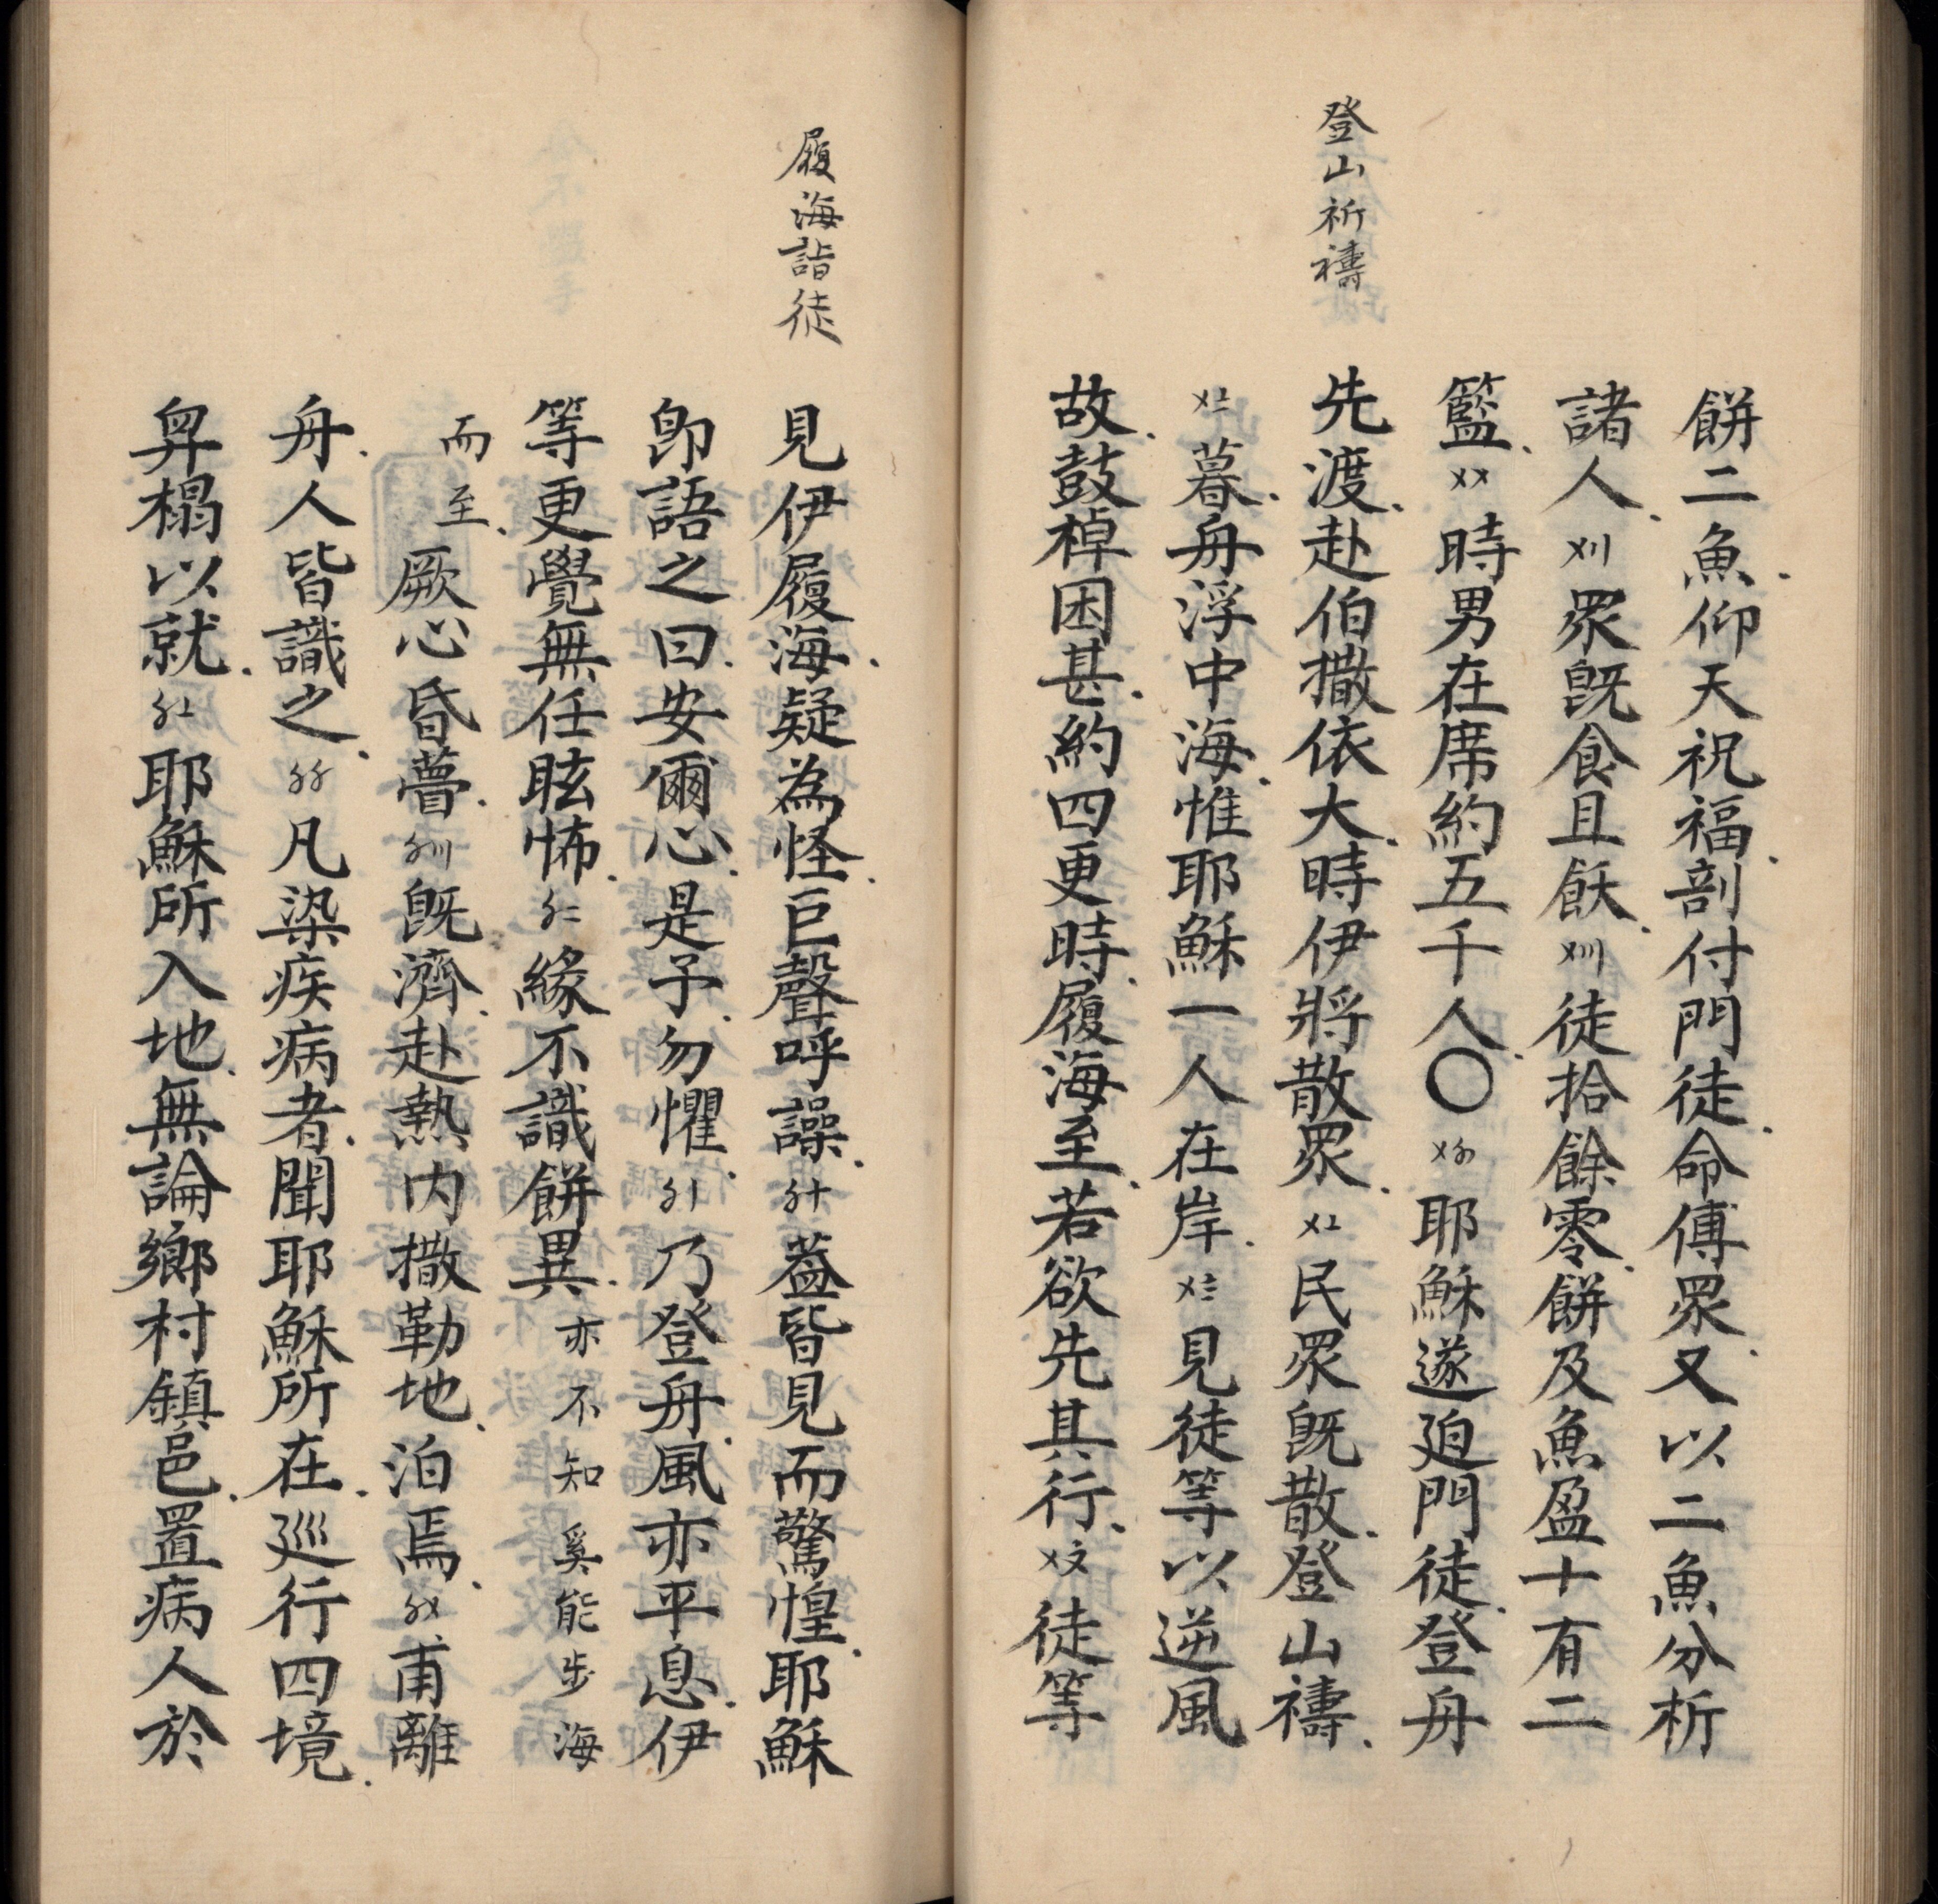 登山祈禱
餅二魚仰天祝福剖付門徒命傅眾又以二魚分析
諸人〤〢眾旣食且飫〤〣徒拾餘零餅及魚盈十有二
籃〤〤時男在席約五千人〇〤〥耶穌遂廹門徒登舟
先渡赴伯撒依大時伊將散眾〤〦民眾旣散登山禱
〤〧暮舟浮中海惟耶穌一人在岸〤〨見徒等以逆風
故鼓棹困甚約四更時履海至若欲先其行〤〩徒等
履海詣徒
見伊履海疑為怪巨聲呼譟〥十葢皆見而驚惶耶穌
卽語之曰安爾心是予勿懼〥〡乃登舟風亦平息伊
等更覺無任眩怖〥〢緣不識餅異亦不知奚能步海
而至厥心昏瞢〥〣旣濟赴熱内撒勒地泊焉〥〤甫離
舟人皆識之〥〥凡染疾病者聞耶穌所在巡行四境
舁榻以就〥〦耶穌所入地無論鄉村鎮邑置病人於